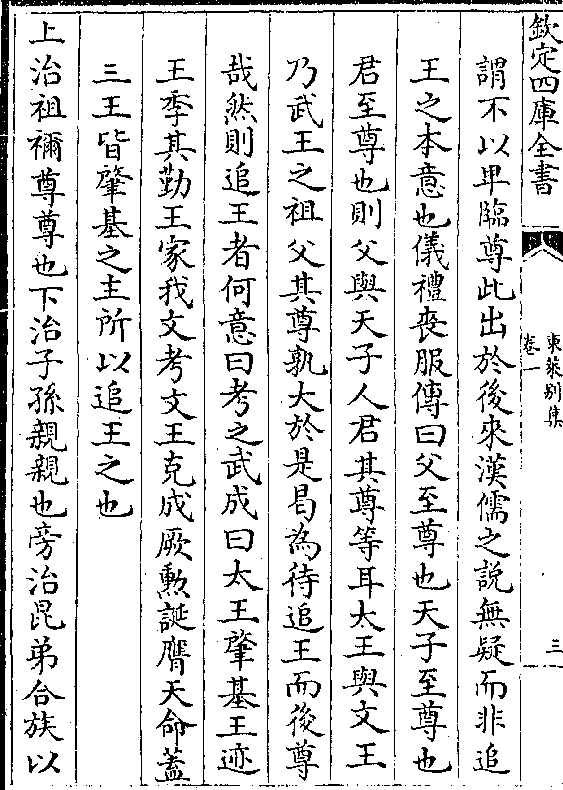 欽定四庫全書
東萊別集
卷一
三
謂不以卑臨尊此出於後來漢儒之說無疑而非追
王之本意也儀禮喪服傳曰父至尊也天子至尊也
君至尊也則父與天子人君其尊等耳太王與文王
乃武王之祖父其尊孰大於是曷為待追王而後尊
哉然則追王者何意曰考之武成曰太王肇基王迹
王季其勤王家我文考文王克成厥勲誕膺天命蓋
三王皆肇基之主所以追王之也
上治祖禰尊尊也下治子孫親親也旁治昆弟合族以